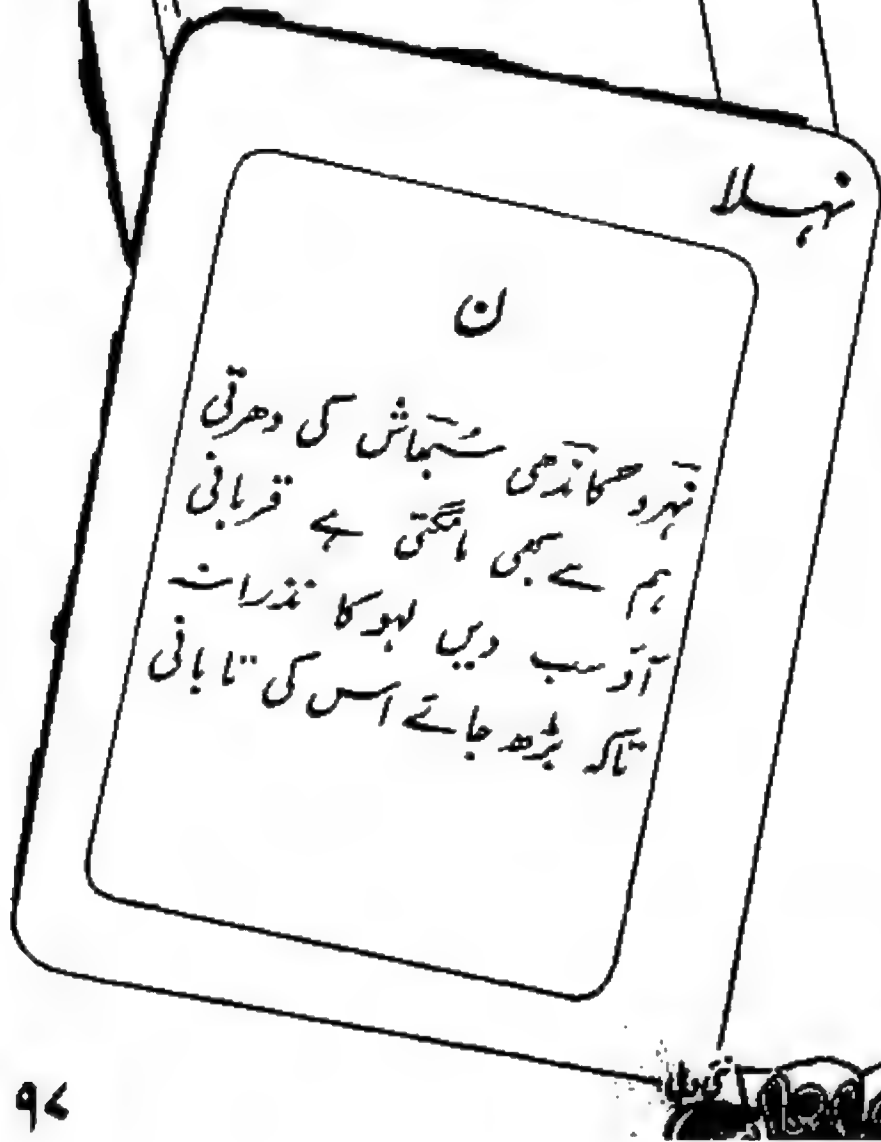 نہلا
ن
نہرو گاندھی سُبھاش کی دھرتی
ہم سے بھی مانگتی ہے قربانی
آؤ سب دیں لہو کا نذرانہ
تاکہ بڑھ جائے اس کی تابانی
نئی دہلی
۹۷